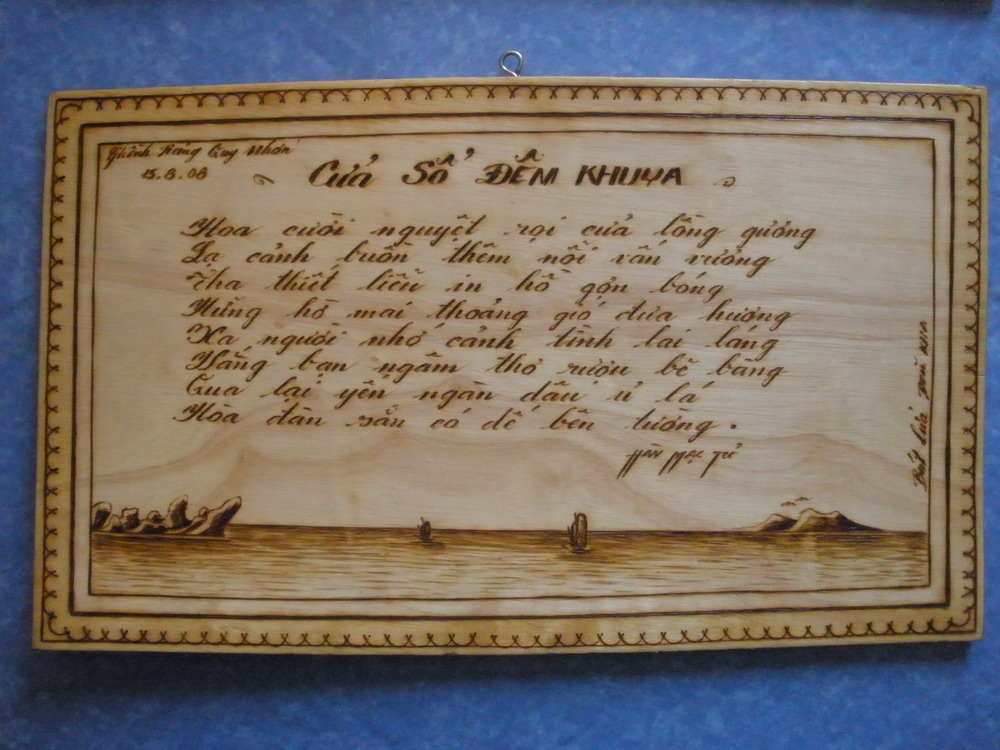 Ghềnh Ráng Quy Nhơn
15.8.08
Cửa Sổ ĐÊM KHUYA
Hoa cười nguyệt rọi cửa lồng gương
Lạ cảnh buồn thêm nỗi vấn vương
Tha thiết liễu in hồ gợn bóng
Hững hờ mai thoảng gió đưa hương
Xa người nhớ cảnh tình lai láng
Vắng bạn ngâm thơ rượu bẽ bàng
Qua lại yến ngàn dâu ủ lá
Hòa đàn sẵn có dế bên tường.
HÀN MẶC TỬ
Bút Lửa DZŨ KHA